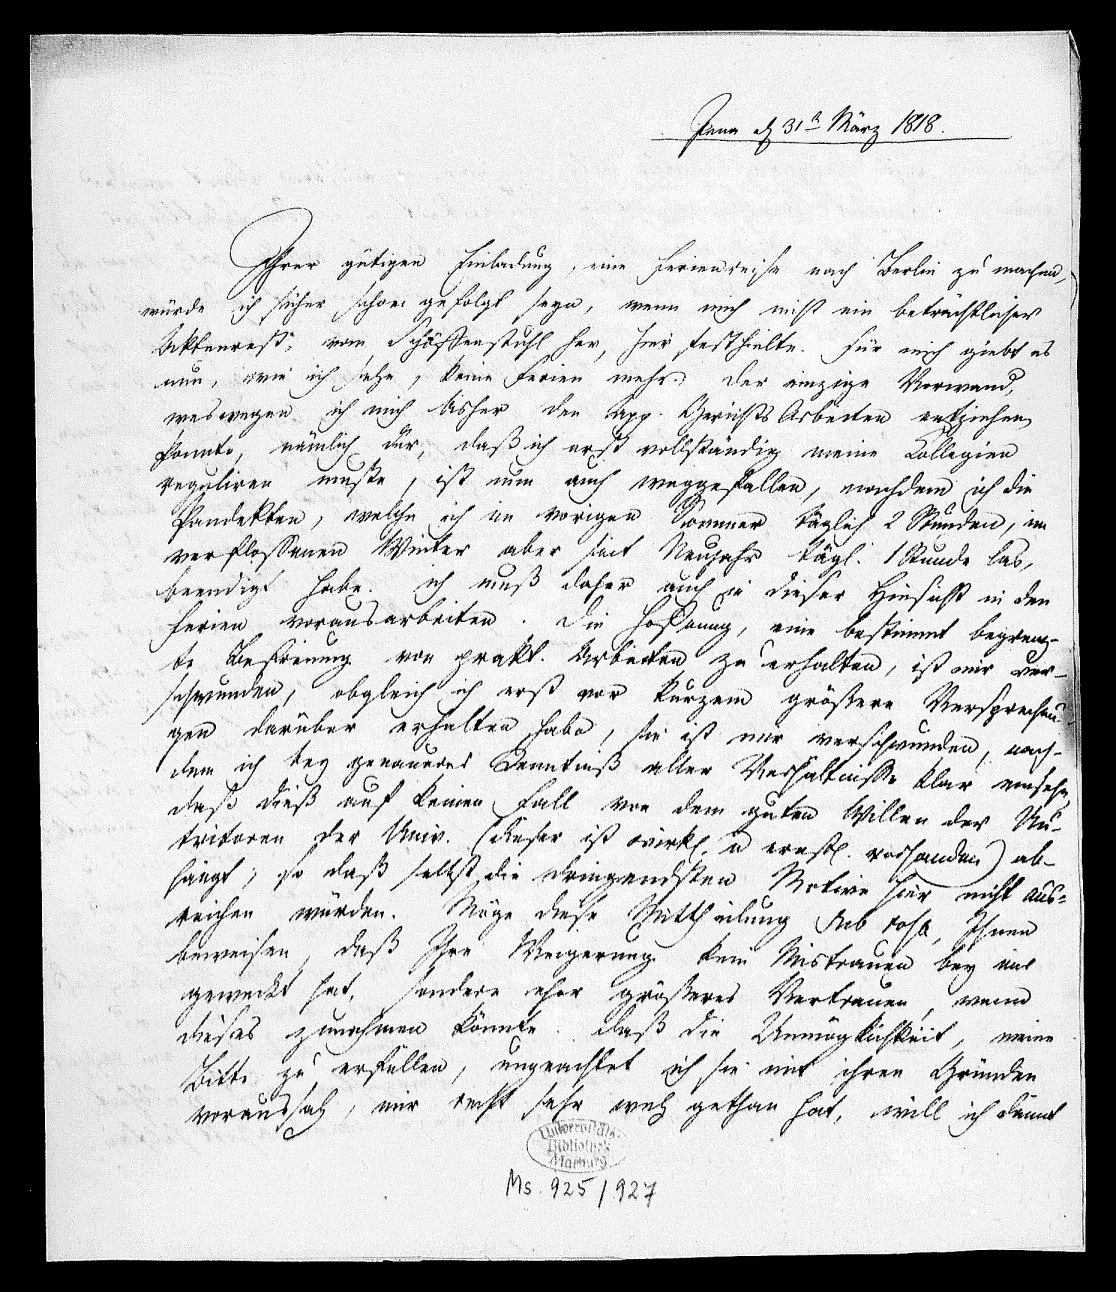 Jena d 31n März 1818.
Ihrer gütigen Einladung, eine Ferienreise nach Berlin zu machen,
würde ich sicher schon gefolgt seyn, wenn mich nicht ein beträchtlicher
Aktenrest, vom Schöffenstuhl her, hier festhielte. Für mich giebt es
nun, wie ich sehe, keine Ferien mehr. Der einzige Vorwand,
weswegen ich mich bisher den App. Gerichts Arbeiten entziehen
konnte, nämlich der, daß ich erst vollständig meine Collegien
reguliren mußte, ist nun auch weggefallen, nachdem ich die
Pandekten, welche ich im vorigen Sommer täglich 2 Stunden, im
verflossenen Winter aber seit Neujahr tägl. 1 Stunde las,
beendigt habe. ich muß daher auch in dieser Hinsicht in den
Ferien vorausarbeiten. Die Hoffnung, eine bestimmt begrenz-
te Befreiung von prakt. Arbeiten zu erhalten, ist mir ver-
schwunden, obgleich ich erst vor kurzem größere Versprechun-
gen darüber erhalten habe, sie ist mir verschwunden, nach-
dem ich bey genauerer Kenntniß aller Verhältnisse klar einsehe,
daß dieß auf keinen Fall von dem guten Willen der Nu-
tritoren der Univ. (dieser ist wirkl. u ernstl. vorhanden) ab-
hängt, so daß selbst die dringendsten Motive hier nicht aus-
reichen würden. Möge diese Mittheilung sub rosa, Ihnen
beweisen, daß Ihre Weigerung kein Mistrauen bey mir
geweckt hat, sondern eher größeres Vertrauen, wenn
dieses zunehmen könnte. Daß die Unmöglichkeit, meine
Bitte zu erfüllen, ungeachtet ich sie mit ihren Gründen
voraussah, mir recht sehr weh gethan hat, will ich damit
Universitäts-
Bibliothek
Marburg
Ms. 925/927